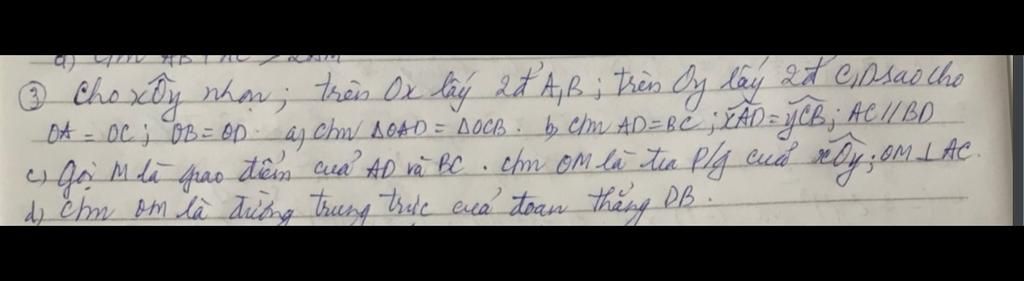 ③ Cho xÔy nhọn; trên Ox lấy 2đ' A,B; trên Oy lấy 2đ' C,D sao cho
OA = OC; OB = OD. a) c/m ΔOAD = ΔOCB. b, c/m AD = BC; x̂AD = ŷCB; AC // BD
c) Gọi M là giao điểm của AD và BC. c/m OM là tia p/g của xÔy; OM ⊥ AC.
d) c/m OM là đường trung trực của đoạn thẳng DB.